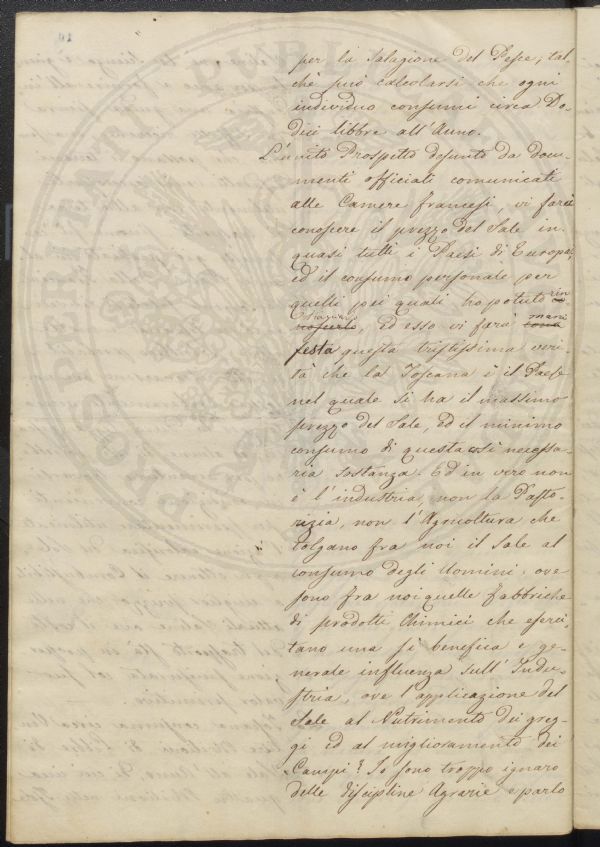 91
per la Salagione del Pesce; tal-
chè può calcolarsi che ogni
individuo consumi circa Do-
dici libbre all'Anno.
L'unito Prospetto desunto da docu-
menti officiali comunicati
alle Camere francesi, vi farà
conoscere il prezzo del Sale in
quasi tutti i Paesi di Europa,
ed il consumo personale per
quelli pei quali ho potuto rin
, ed esso vi farà mani
festa questa tristissima veri-
tà che la Toscana è il Paese
nel quale si ha il massimo
prezzo del Sale, ed il minimo
consumo di questa così necessa-
ria sostanza. Ed in vero non
è l'industria, non la Pasto-
rizia, non l'Agricoltura che
tolgano fra noi il Sale al
consumo degli Uomini: ove
sono fra noi quelle fabbriche
di prodotti Chimici che eserci-
tano una sì benefica e ge-
nerale influenza sull'Indu-
stria, ove l'applicazione del
Sale al Nutrimento dei greg-
gi ed al miglioramento dei
Campi? Io sono troppo ignaro
delle discipline Agrarie e parlo